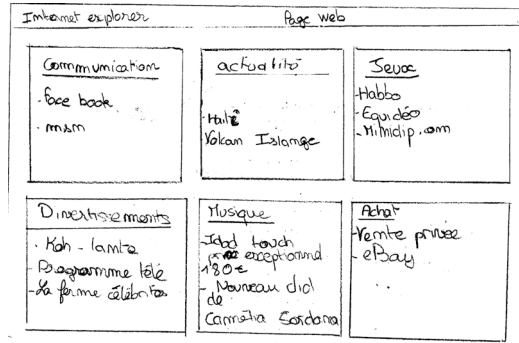 Internet explorer Page web
Communication
- face book
- msn
actualité
- Haïti
Volcan Islange
Jeux
- Habbo
- Equidéo
- Mimidip.com
Divertissements
- Koh-lanta
- Programme télé
- La ferme célébrités
Musique
- Ipod touch
prix exceptionnel
180€
- Nouveau clid
de
Camélia Jordana
Achat
- Vente privée
- eBay